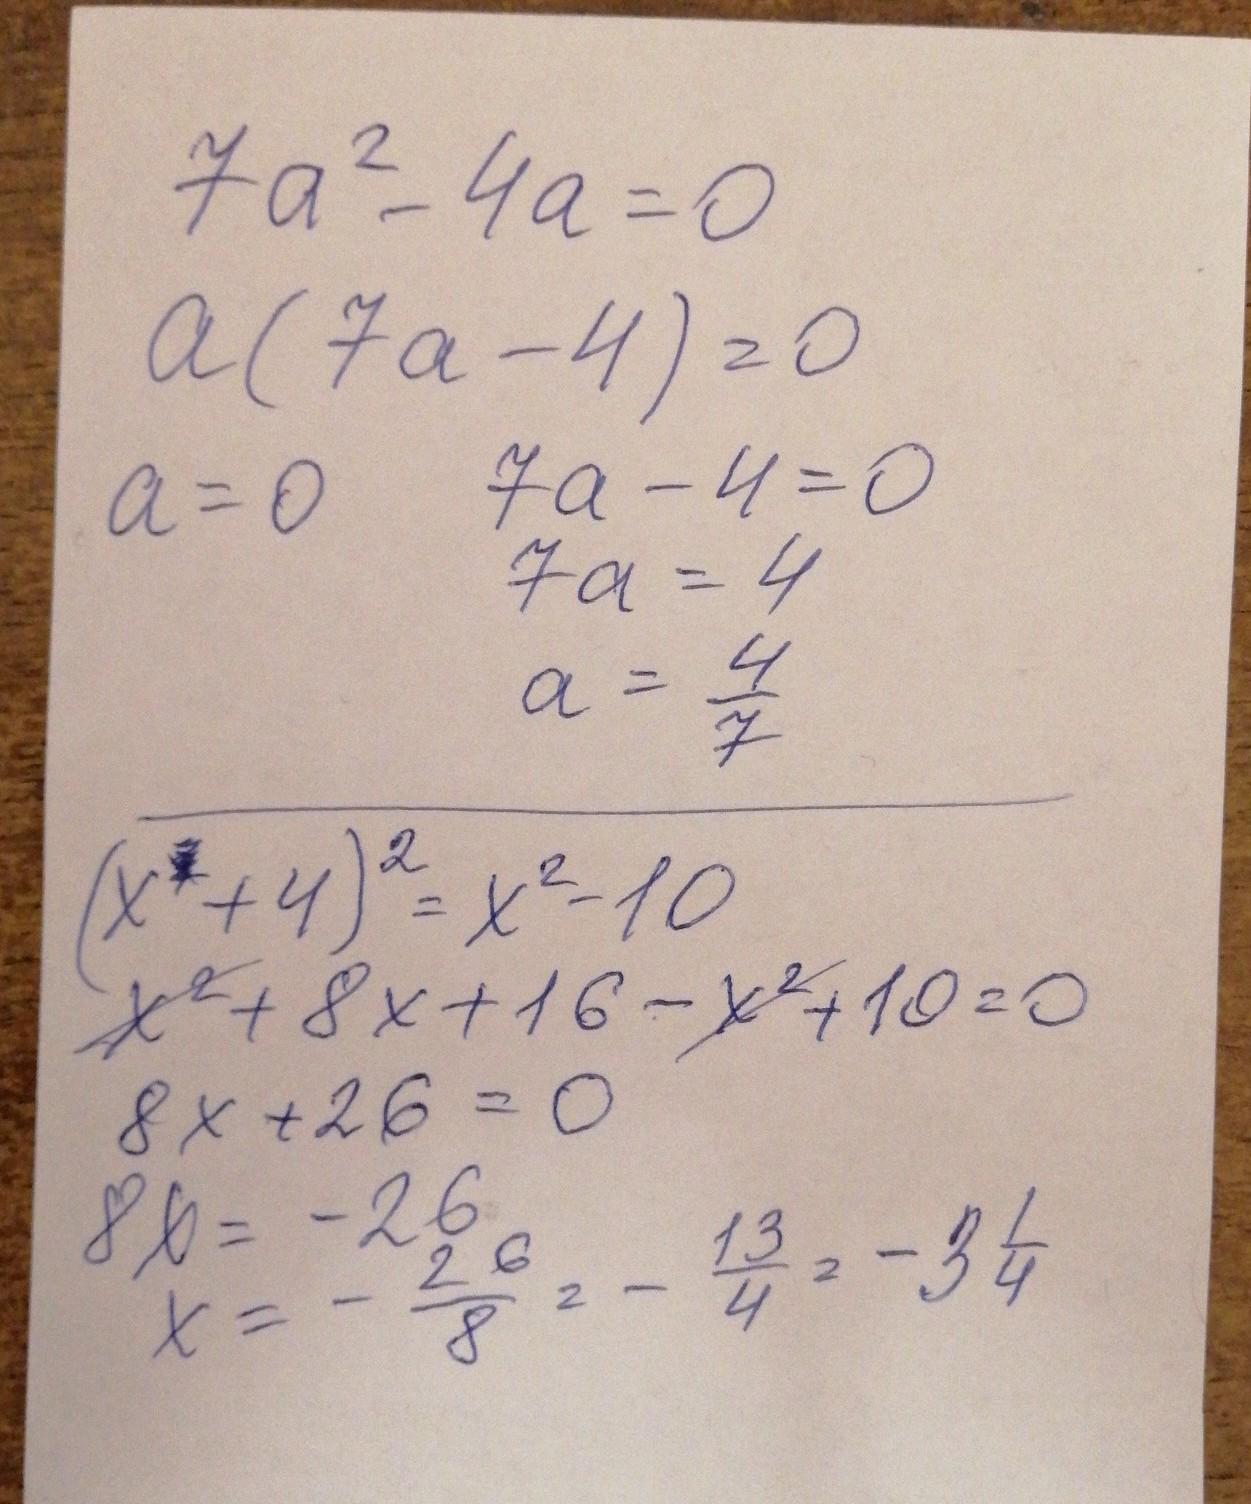 7a² - 4a = 0
a(7a - 4) = 0
a = 0    7a - 4 = 0
7a = 4
a = 4/7
(x + 4)² = x² - 10
x² + 8x + 16 - x² + 10 = 0
8x + 26 = 0
8x = -26
x = - 26/8 = - 13/4 = -3 1/4